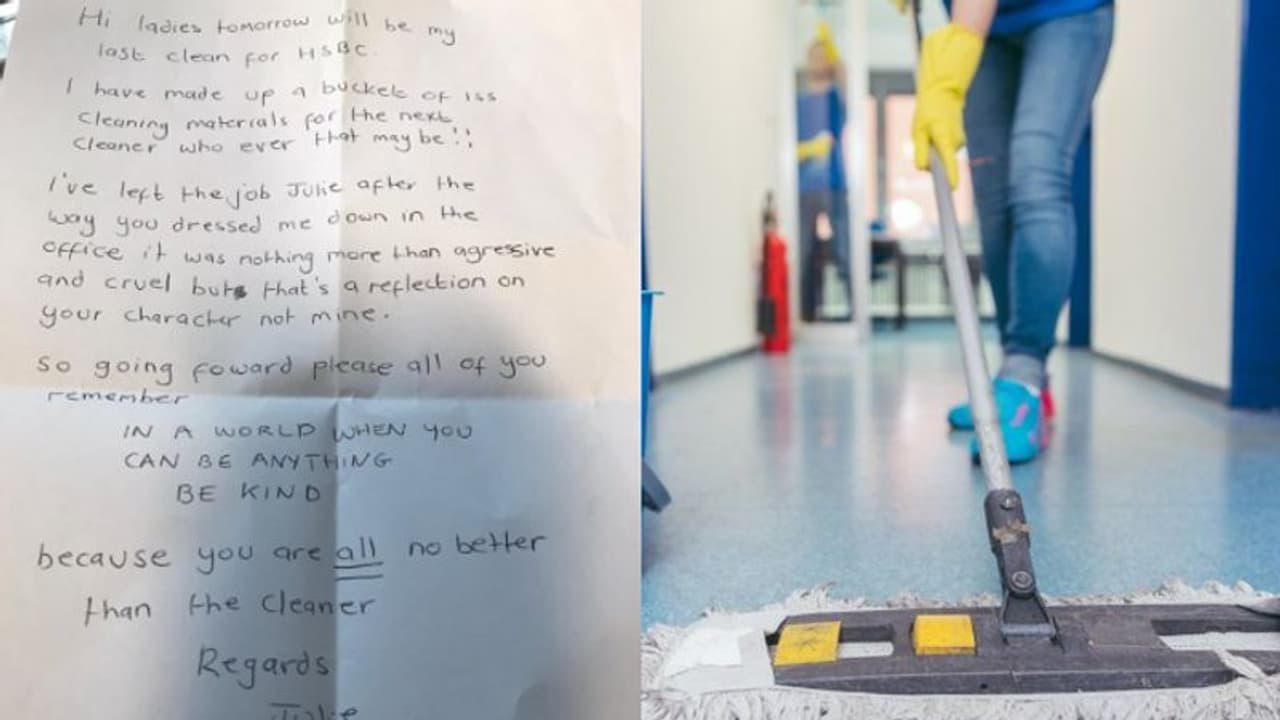 Hi ladies tomorrow will be my
last clean for HSBC.
I have made up a bucket of iss
cleaning materials for the next
cleaner who ever that may be!!
I've left the job Julie after the
way you dressed me down in the
office it was nothing more than agressive
and cruel but that's a reflection on
your character not mine.
so going foward please all of you
remember
IN A WORLD WHEN YOU
CAN BE ANYTHING
BE KIND
because you are all no better
than the cleaner
Regards
Julie